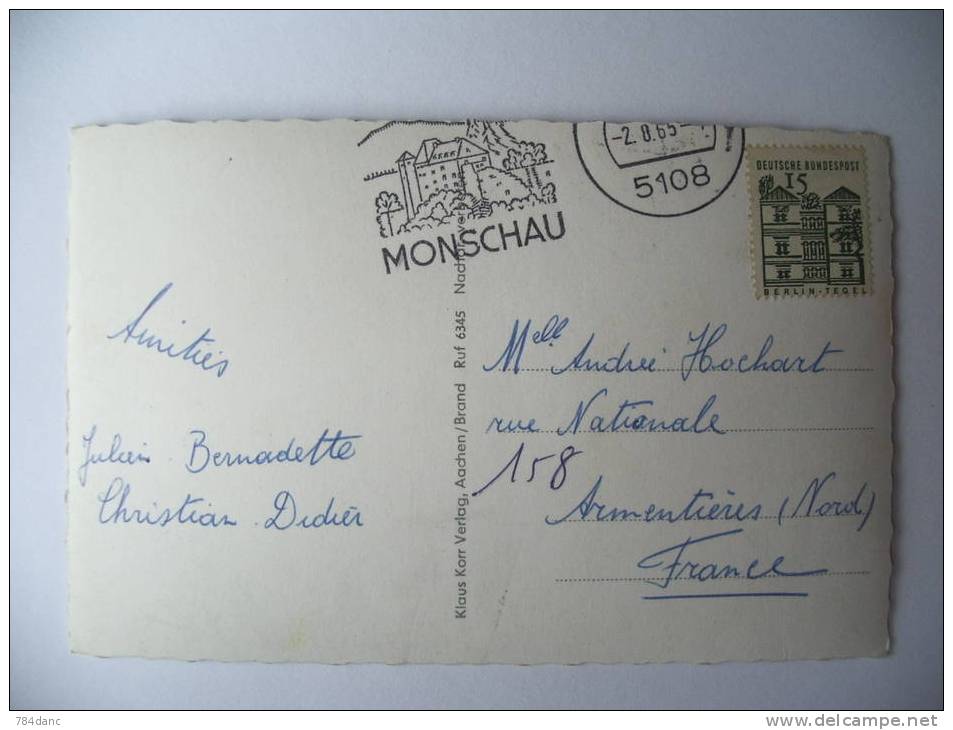 -2.8.65-
5108
MONSCHAU
DEUTSCHE BUNDESPOST
15
BERLIN-TEGEL
Amitiés
Julien Bernadette
Christian Didier
Klaus Korr Verlag, Aachen/Brand Ruf 6345
Melle Andrée Hochart
rue Nationale
158
Armentières (Nord)
France
784danc
www.delcampe.net